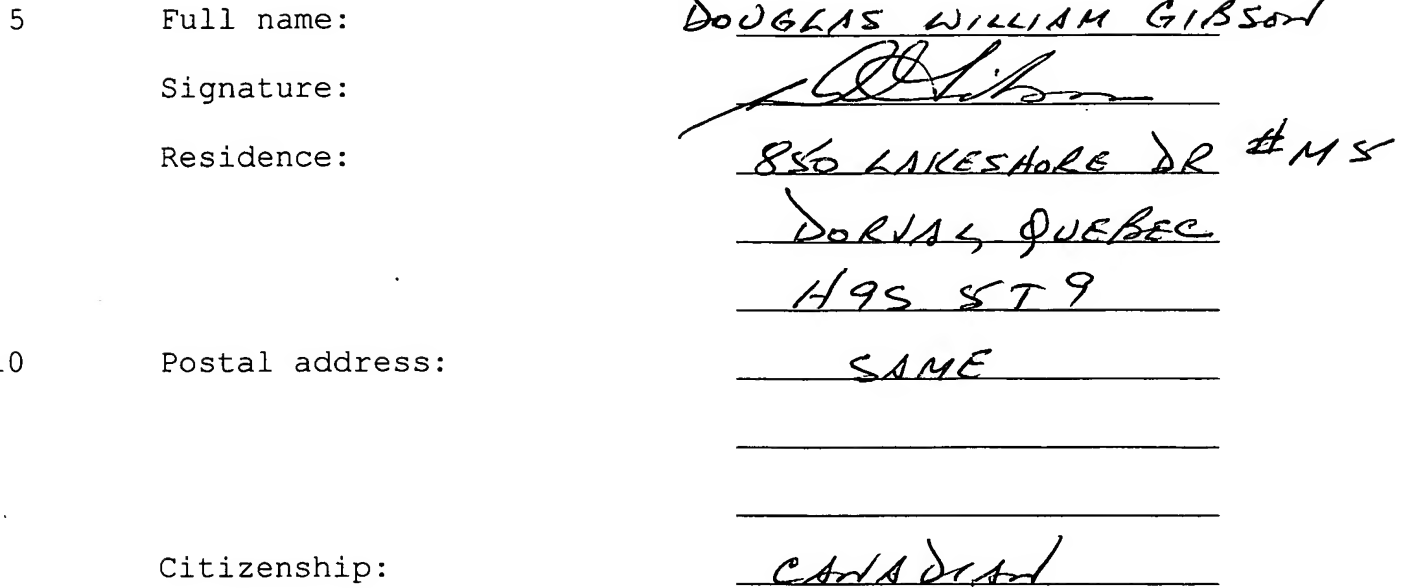 5 Full name: DOUGLAS WILLIAM GIBSON
Signature:
Residence: 850 LAKESHORE DR #M5
DORVAL, QUEBEC
H9S 5T9
10 Postal address: SAME
Citizenship: CANADIAN